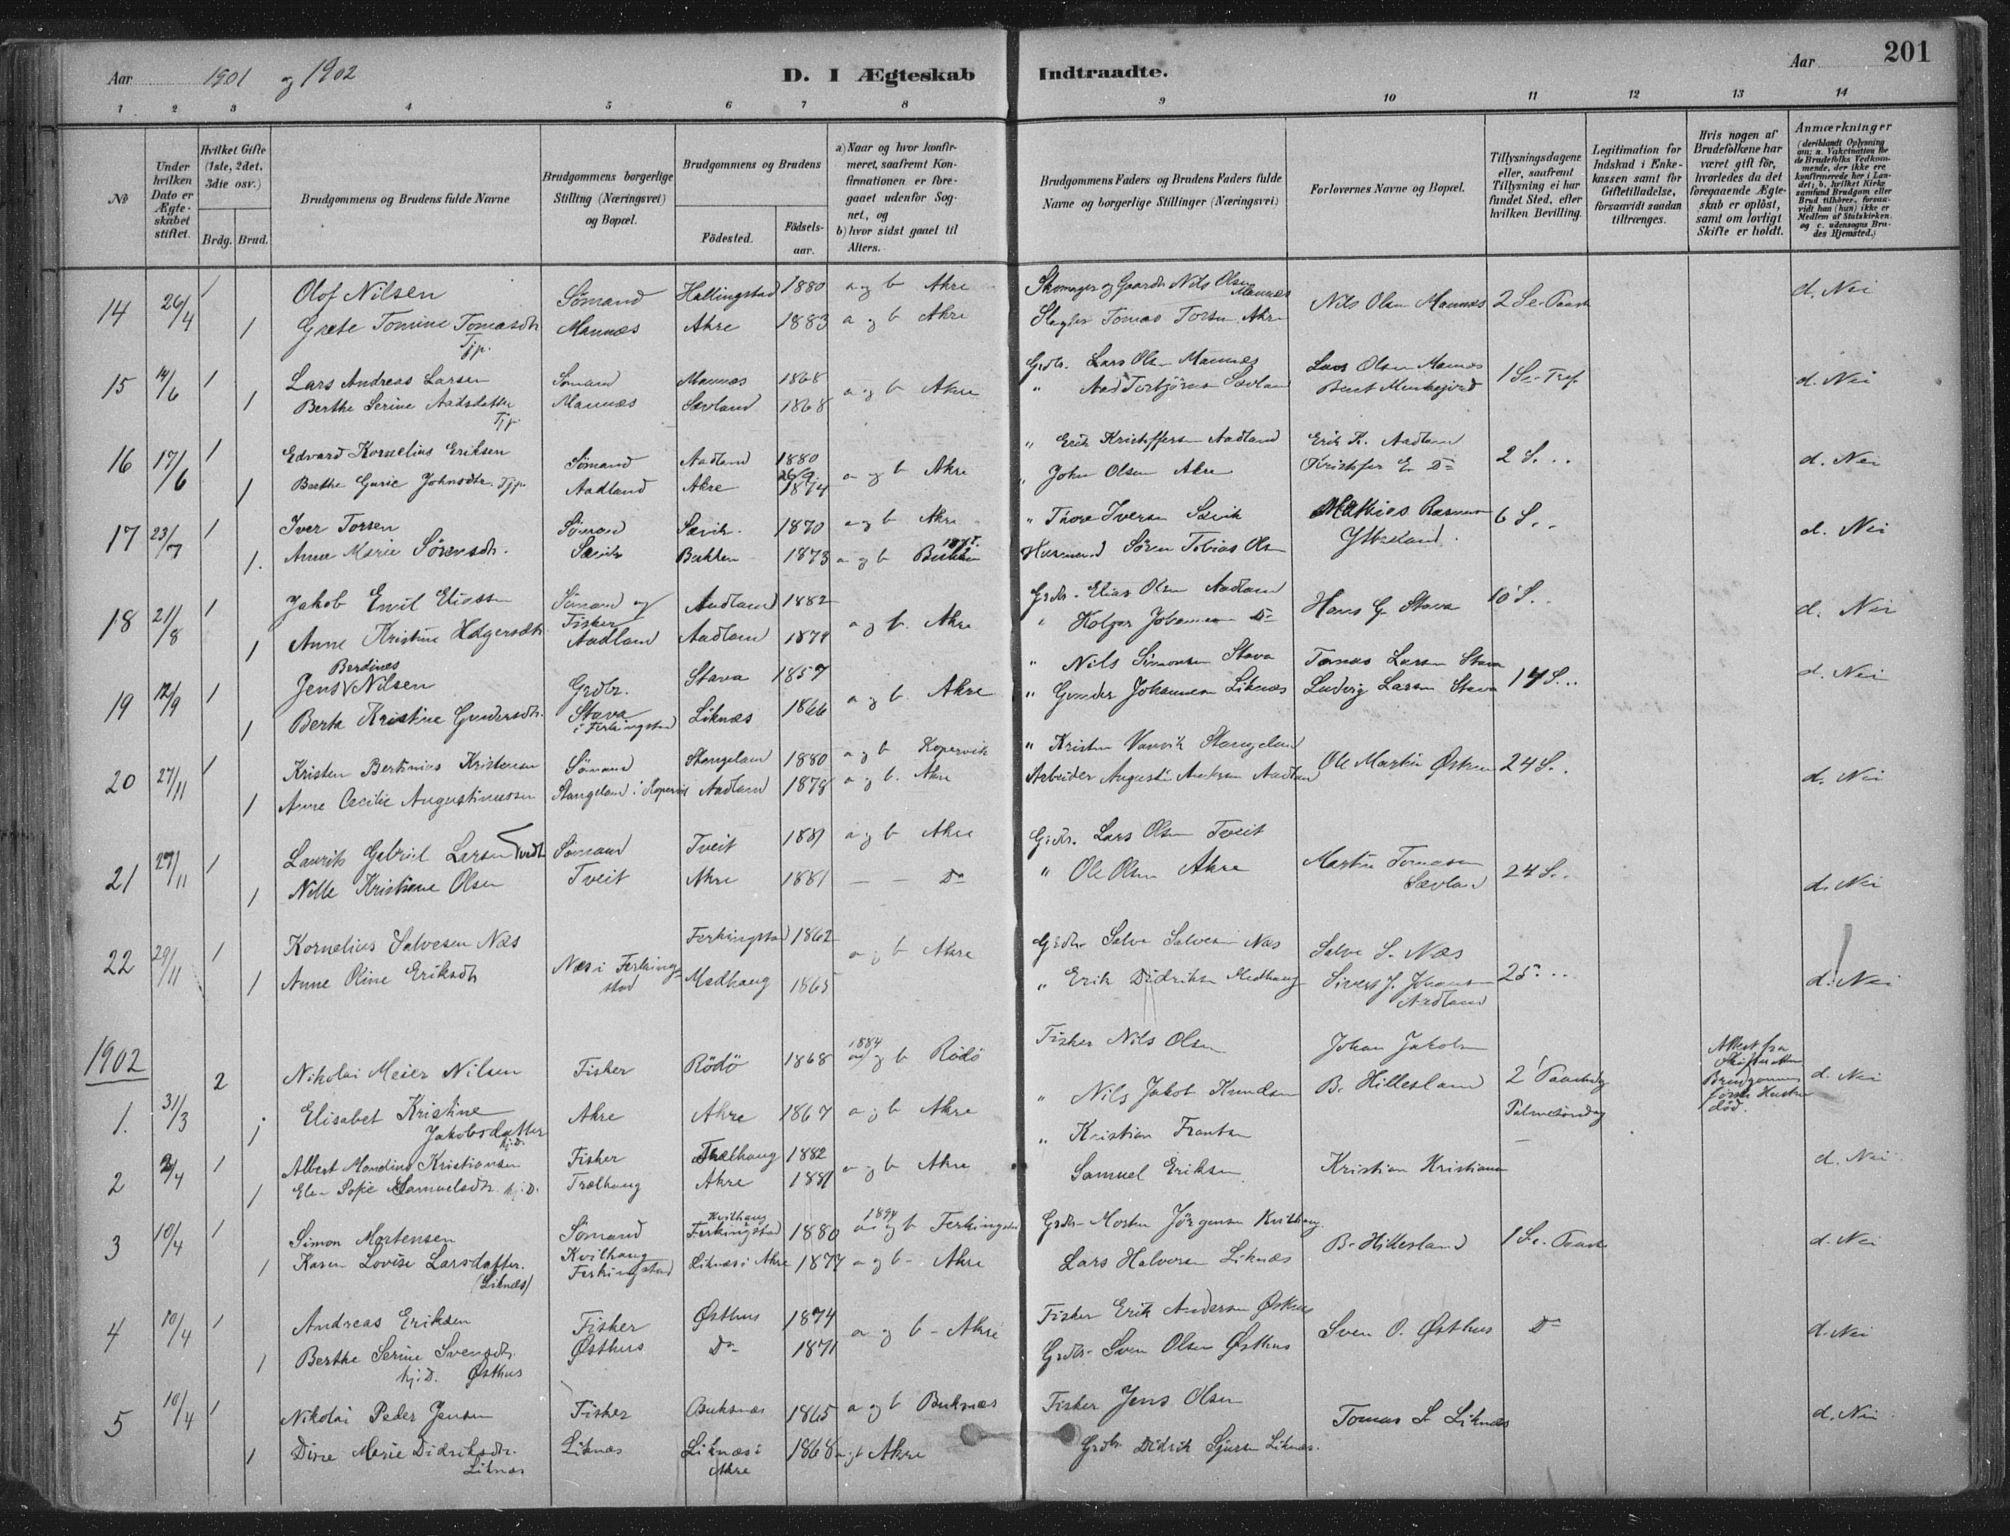 Aar 1901 og 1902 D. I Ægteskab Indtraadte. Aar 201
1 2 3 4 5 6 7 8 9 10 11 12 13 14
No
Under hvilken Dato er Ægteskabet stiftet.
Hvilket Gifte (1ste, 2det, 3die osv.)
Brdg. Brud.
Brudgommens og Brudens fulde Navne
Brudgommens borgerlige Stilling (Næringsvei) og Bopæl.
Brudgommens og Brudens
Fødested.
Fødsels-aar.
a) Naar og hvor konfirmeret, saafremt Konfirmationen er foregaaet udenfor Sognet, og
b) hvor sidst gaaet til Alters.
Brudgommens Faders og Brudens Faders fulde Navne og borgerlige Stillinger (Næringsvei)
Forlovernes Navne og Bopæl.
Tillysningsdagene eller, saafremt Tillysning ei har fundet Sted, efter hvilken Bevilling.
Legitimation for Indskud i Enkekassen samt for Giftetilladelse, forsaavidt saadan tiltrænges.
Hvis nogen af Brudefolkene har været gift før, hvorledes da det foregaaende Ægteskab er opløst, samt om lovligt Skifte er holdt.
Anmærkninger (deriblandt Oplysning om: a. Vakcination for de Brudefolks Vedkommende, der ikke ere konfirmerede her i Landet; b. hvilket Kirkesamfund Brudgom eller Brud tilhører, forsaavidt han (hun) ikke er Medlem af Statskirken. og c. udensogns Brudes Hjemsted.)
14 26/4 1 Olof Nilsen Sömand Hallingstad 1880 a og b Akre Skomager og Gaardb. Nils Olsen Mannes Nils Olsen Mannes 2 Se-Paask d. Nei
1 Grete Tomine Tomasdtr Tjp. Mannæs Akre 1883 a og b Akre Tomas Torsen Akre
15 14/6 1 Lars Andreas Larsen Sömand Mannæs 1868 a og b Akre Grdbr. Lars Olsen Mannæs Lars Olsen Mannes 1 Se-Tref d. Nei
1 Berthe Serine Aadsdatter Tjp. Mannæs Sævland 1868 " Aad Torbjörnsen Sævland Munkejord
16 17/6 1 Edvard Kornelius Eriksen Sömand Aadland 1880 a og b Akre " Erik Kristoffersen Aadland Erik K. Aadland 2 S. .. d. Nei
1 Berthe Gurie Johnsdtr. Tjp. Aadland Akre 26/9 1874 " John Olsen Akre Kristofer E. Do
17 23/7 1 Iver Torsen Sömand Sævik 1870 a og b Akre " Thore Iversen Sævik Mathies Rasmusen 6 S. .. d. Nei
1. Anne Marie Sörensdtr. Sævik Bukken 1873 a og b Bukken Huusmand Sören Tobias Olsen Ytreland.
18 21/8 1 Jakob Emil Eliassen Sömand og Fisker Aadland 1882 a og b. Akre Grdbr. Elias Olsen Aadland Hans G. Stava 10 S. .. d. Nei
1 Anne Kristine Holgersdtr. Aadland Aadland 1879 " Holger Johannesen Do
19 12/9 1 Jens Berdines Nilsen Grdbr. Stava 1857 a og b Akre " Nils Simonsen Stava Tomas Larsen Stava 14 S. .. d. Nei
1 Berte Kristine Gundersdtr. Stava i Ferkingstad Liknæs 1866 " Gunder Johannesen Liknæs Ludvig Larsen Stava
20 27/11 1 Kristen Bertinius Kristensen Sömand Stangeland 1880 a og b Kopervik " Kristen Vanvik Stangeland Ole Martin Østhus 24 S. .. d. Nei
1 Anne Cecilie Augustinussen Stangeland i Kopervik Aadland 1878 a og b. Akre Arbeider Augustin Aadland
21 27/11 1 Laurits Gabriel Larsen Tveit Sömand Tveit 1881 a og b Akre Grdbr. Lars Olsen Tveit Martin Tomasen Sævland 24 S. .. d. Nei
1 Nille Kristiane Olsen Tveit Akre 1881 — — Do " Ole Olsen Akre
22 29/11 1 Kornelius Salvesen Næs Næs i Ferkingstad Ferkingstad 1862 a og b Akre Grdbr. Salve Salvesen Næs Salve S. Næs 25 .. d. Nei
1 Anne Oline Eriksdtr Medhaug 1865 " Erik Didriksen Medhaug Sivert J. Johansen Aadland
1902
1. 31/3 2 Nikolai Meier Nilsen Fisker Rödö 1868 1884 a og b Rödö Fisker Nils Olsen Johan Jakobsen 2 Paaskedag Attest fra Skifteretten Brudgommens förste Hustru död. d. Nei
1 Elisabet Kristine Jakobsdatter kj.D. Akre Akre 1867 a og b Akre " Nils Jakob Knudsen B. Hillesland Palmesöndag
2 2/4 1 Albert Mondius Kristiansen Fisker Trælhaug 1882 a og b Akre " Kristian Frantsen Kristian Kristiansen d. Nei
1 Elen Sofie Samuelsdtr. kj.D. Trælhaug Akre 1881 Samuel Eriksen
3 10/4 1 Simon Mortensen Sömand Kvilhaug Ferkingstad 1880 1894 a og b Ferkingstad Grdbr- Morten Jörgensen Kvilhaug B. Hillesland 1 Se. Paask d. Nei
1 Karen Lovise Larsdatter. (Liknæs) Kvilhaug Ferkingstad Liknæs i Akre 1877 a og b- Akre Lars Halvorsen Liknæs
4 10/4 1 Andreas Eriksen Fisker Østhus 1874 a og b - Akre Fisker Erik Andersen Østhus Sven O. Østhus Do d. Nei
1 Berthe Serine Svensdtr. kj.D. Østhus Østhus Do 1871 Grdbr- Sven Olsen Østhus
5 10/4 1 Nikolai Peder Jensen Fisker Buksnæs 1865 a og b Buknæs Fisker Jens Olsen Tomas S. Liknæs d. Nei
1 Dirie Marie Didriksdtr. Liknæs Liknæs Liknæs i Akre 1868 a og b Akre Grdbr Didrik Sjursen Liknæs.